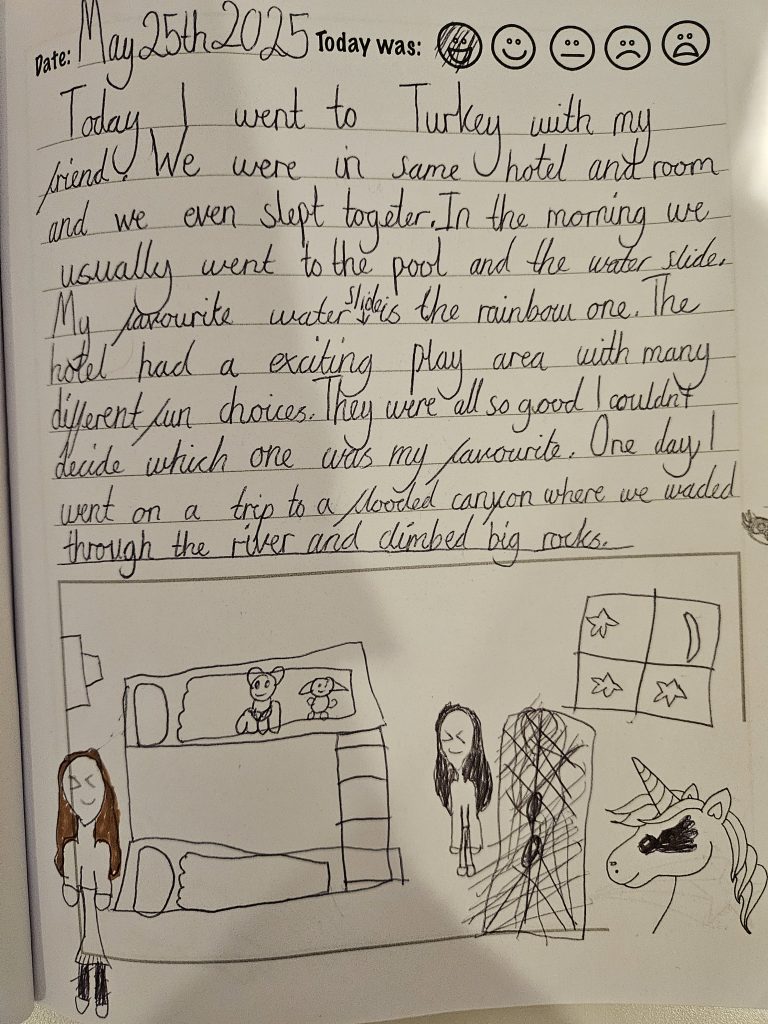 Date: May 25th 2025 Today was:
Today I went to Turkey with my
friend. We were in same hotel and room
and we even slept togeter. In the morning we
usually went to the pool and the water slide.
My favourite water slide is the rainbow one. The
hotel had a exciting play area with many
different fun choices. They were all so good I couldn't
decide which one was my favourite. One day, I
went on a trip to a flooded canyon where we waded
through the river and climbed big rocks.